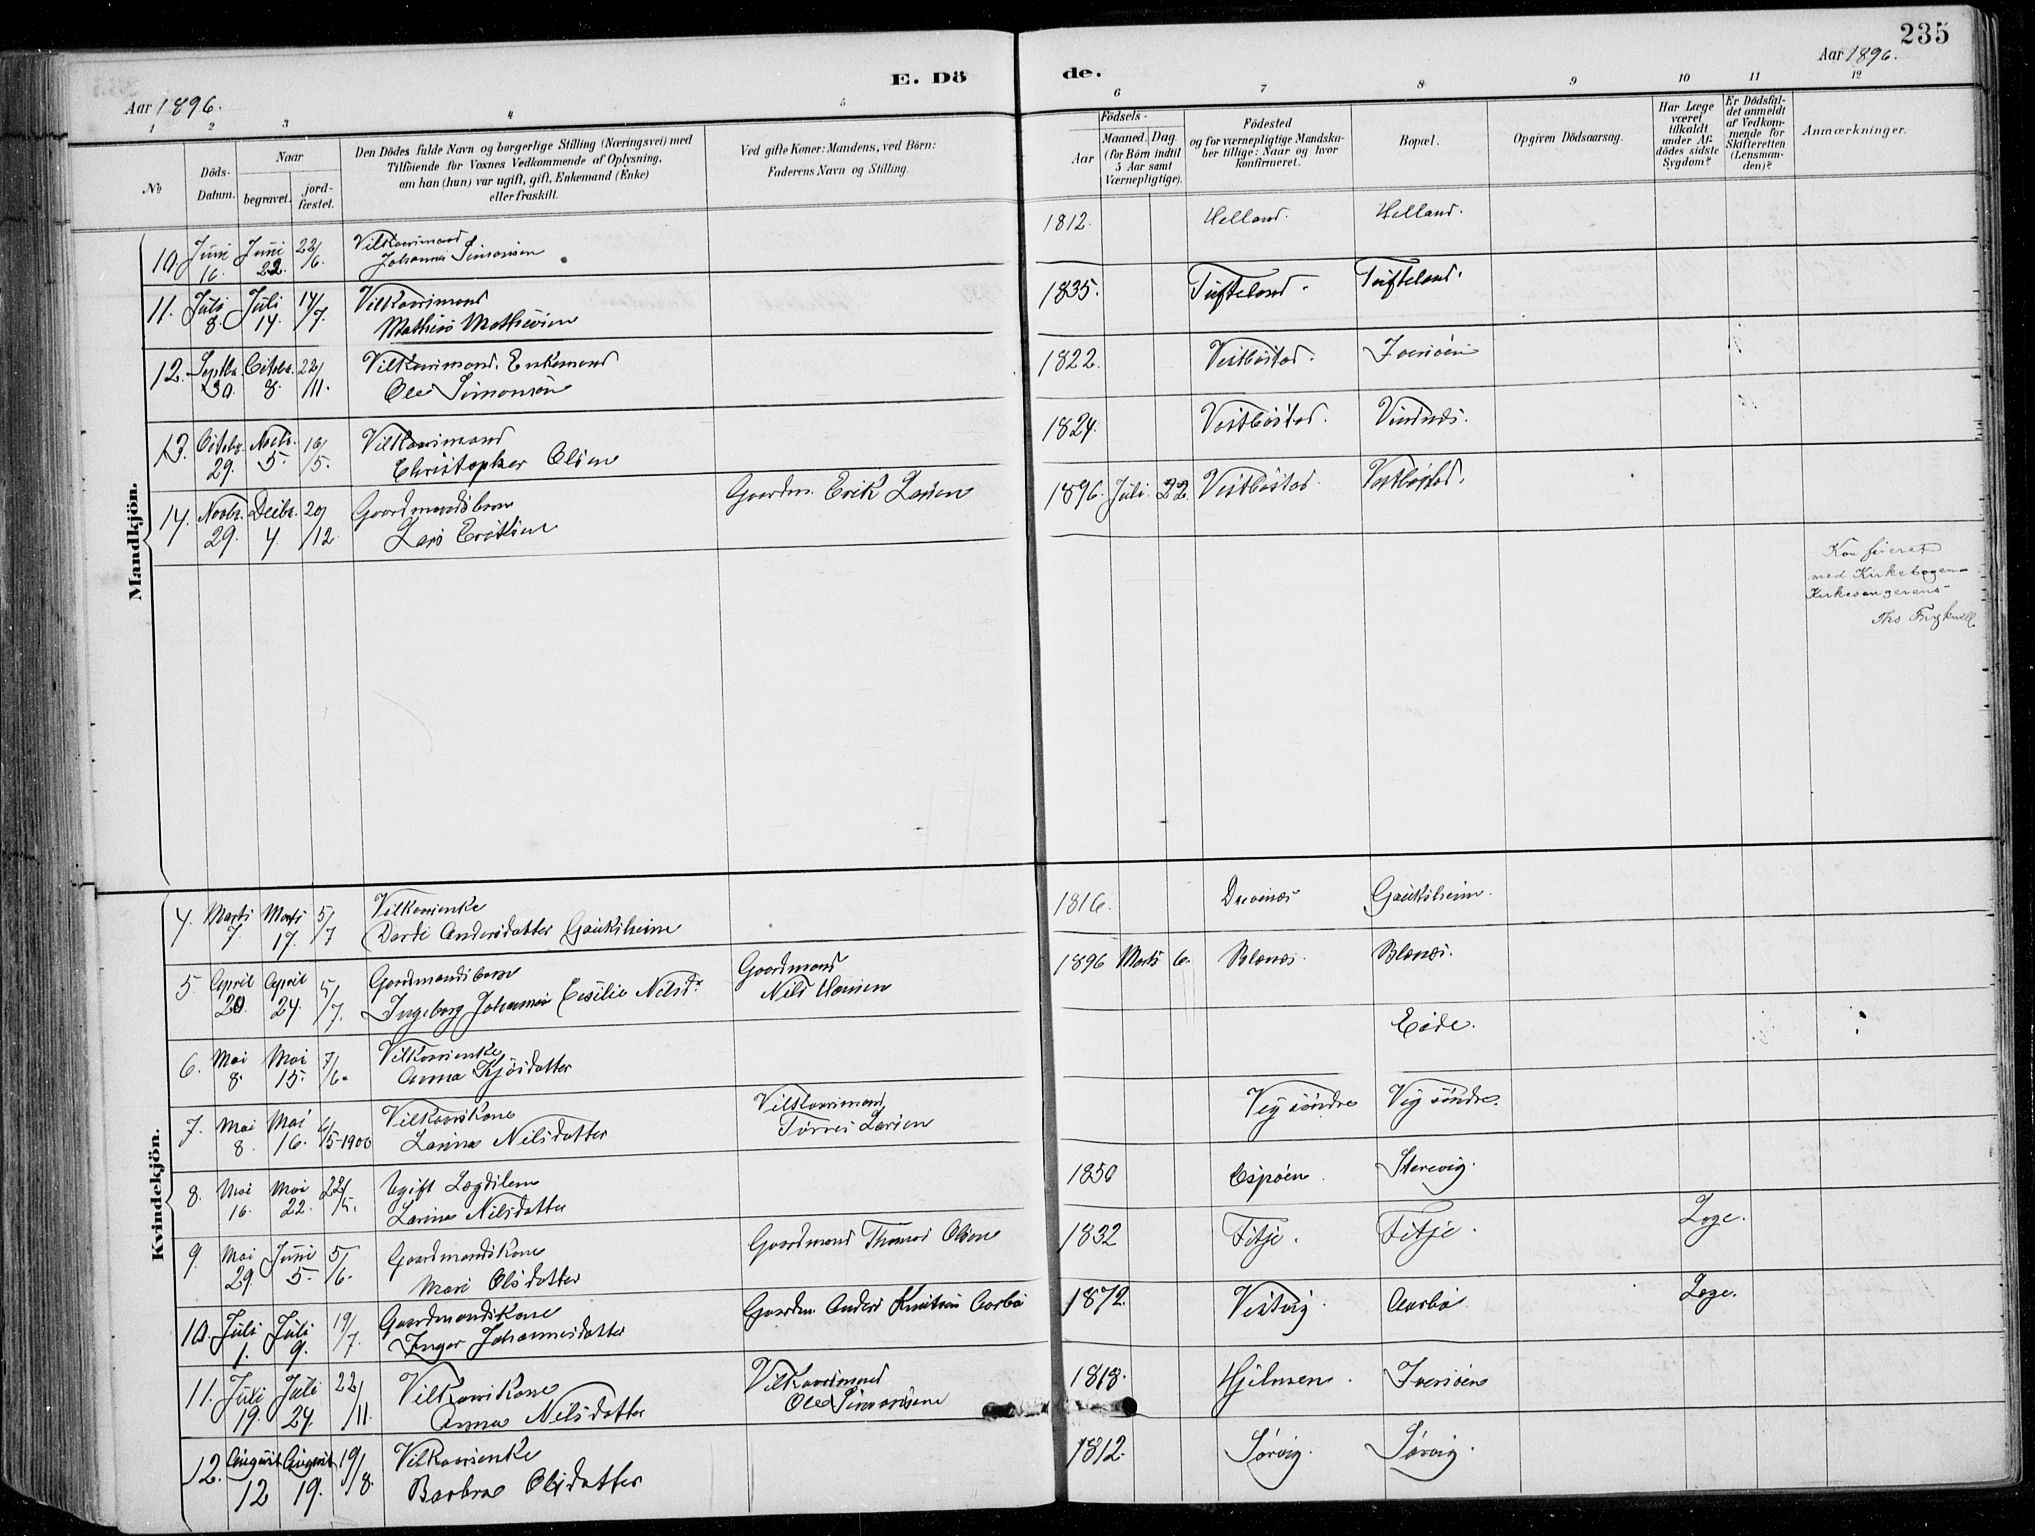 235
E. Dö de.
Aar 1896. Aar 1896.
1 2 3 4 5 6 7 8 9 10 11 12
No
Döds-Datum.
Naar begravet. jord-fæstet.
Den Dödes fulde Navn og borgerlige Stilling (Næringsvei) med
Tilföiende for Voxnes Vedkommende af Oplysning,
om han (hun) var ugift, gift, Enkemand (Enke)
eller fraskilt.
Ved gifte Koner: Mandens, ved Börn:
Faderens Navn og Stilling.
Födsels-
Aar Maaned. Dag.
(for Börn indtil
5 Aar samt
Værnepligtige).
Födested
og for værnepligtige Mandska-
ber tillige: Naar og hvor
konfirmeret.
Bopæl.
Opgiven Dödsaarsag.
Har Læge
været
tilkaldt
under Af-
dödes sidste
Sygdom?
Er Dödsfal-
det anmeldt
af Vedkom-
mende for
Skifteretten
(Lensman-
den)?
Anmærkninger.
Mandkjön.
10. Juni 16. Juni 22. 22/6. Vilkaarsmand Johannes Simonsen 1812. Helland. Helland.
11. Juli 8. Juli 14. 14/7. Vilkaarsmand Mathias Mathisen 1835. Tufteland. Tufteland.
12. Septbr. 30. Octobr. 8. 22/11. Vilkaarsmand. Enkemand Ole Simonsen 1822. Vestbøstad. Iversøen
13. Octobr. 29. Novbr. 5. 16/5. Vilkaarsmand Christopher Olsen 1824. Vestbøstad. Vindnæs.
14. Novbr. 29. Decbr. 4. 20/12. Gaardmandsbarn Lars Eriksen Gaardm. Erik Larsen 1896. Juli. 22. Vestbøstad. Vestbøstad.
Konfereret
med Kirkebogen
Kirkesangerens
Ths
Kvindekjön.
4. Marts 7. Marts 17. 5/7 Vilkaarsenke Dordi Andersdatter Gauksheim 1816. Drevnæs Gauksheim.
5. April 20. April 24. 5/7. Gardmandsbarn Ingeborg Johanna Cesilie Nilsdr. Gaardmand Nils Hansen 1896 Marts 6. Blænæs. Blænæs.
6. Mai 8. Mai 15. 7/6. Vilkaarsenke Anna Kjøsdatter Eide.
7. Mai 8. Mai 16. 6/5-1900 Vilkaarskone Larina Nilsdatter Vilkaarsmand Tørres Larsen Vig søndre Vig søndre.
8. Mai 16. Mai 22. 22/5. Ugift Lægdslem Larina Nilsdatter 1850 Espøen. Sterevig.
9. Mai 29 Juni 5. 5/6. Gaardmandskone Mari Olsdatter Gaardmand Thomas Olsen 1832 Fitje. Fitje. Læge.
10. Juli 1. Juli 9. 19/7. Gaardmandskone Inger Johannesdatter Gaardm. Anders Knutsen Aarbø 1872. Vestvig. Aarbø Læge.
11. Juli 19. Juli 24. 22/11. Vilkaarskone Anna Nilsdatter Vilkaarsmand Ole Simonsen 1818. Hjelmen. Iversøen
12. August 12 August 19. 19/8. Vilkaarsenke Barbra Olsdatter 1812. Sørvig. Sørvig.